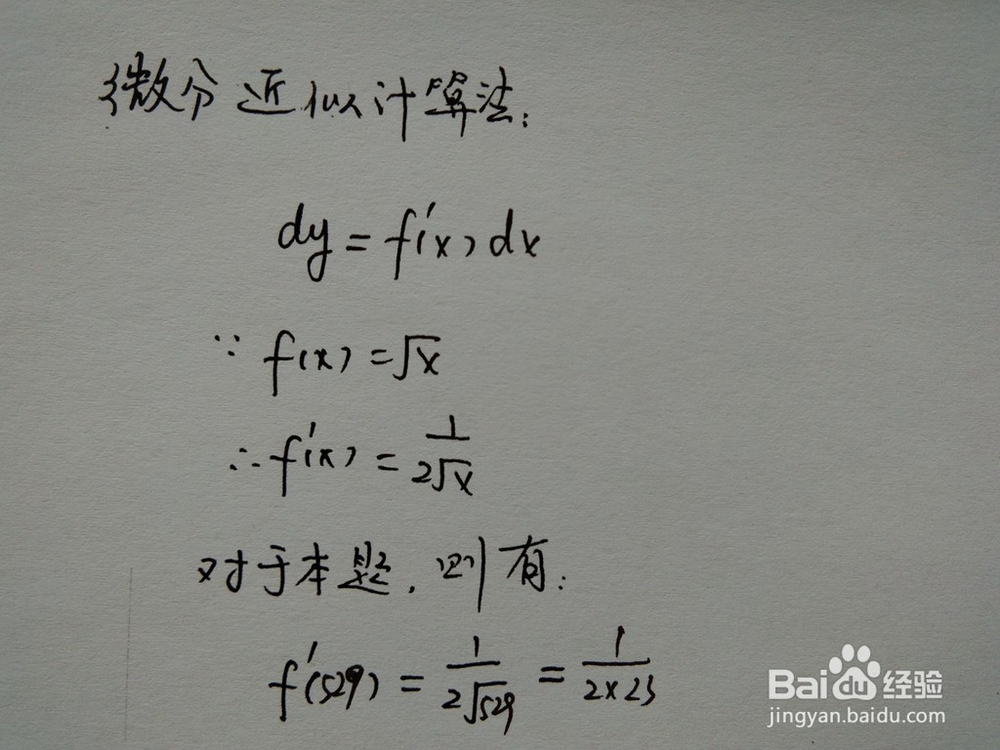 微分近似计算法:
dy = f'(x) dx
∵ f(x) = √x
∴ f'(x) = 1/(2√x)
对于本题, 则有:
f'(529) = 1/(2√529) = 1/(2×23)
Baidu经验
jingyan.baidu.com